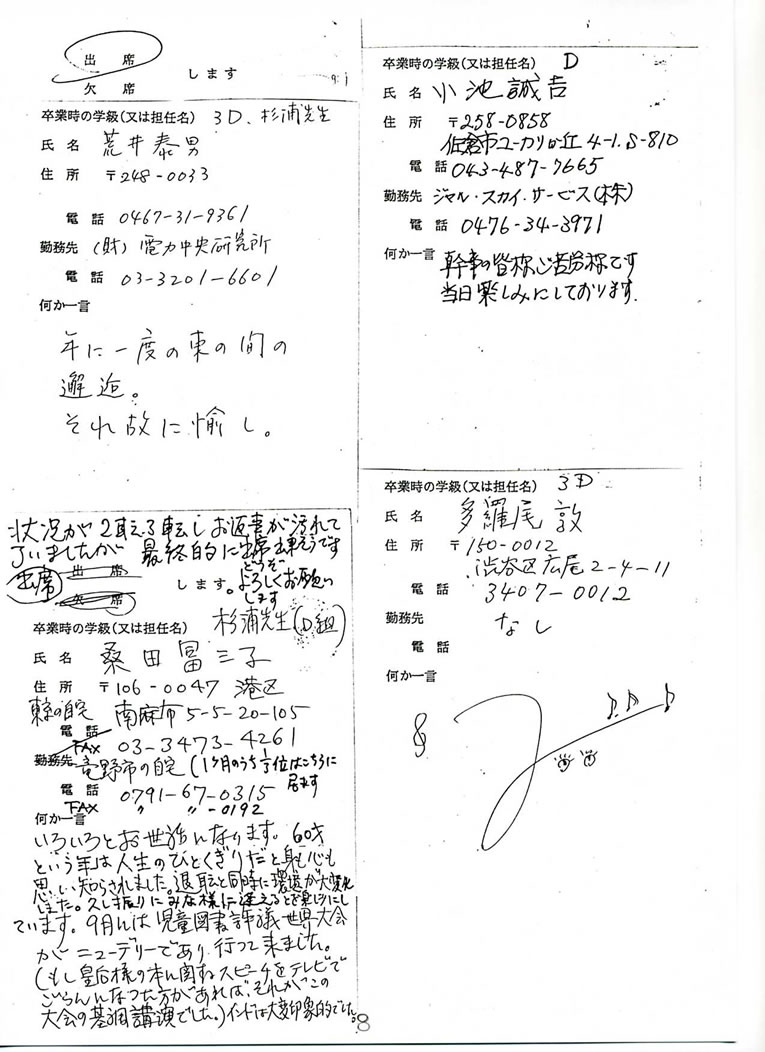 出 席
欠 席
します
卒業時の学級(又は担任名) 3D、杉浦先生
氏 名 荒井泰男
住 所 〒248-0033
電 話 0467-31-9361
勤務先 (財)電力中央研究所
電 話 03-3201-6601
何か一言
年に一度の束の間の
邂逅。
それ故に愉し。
状況が2転3転しお返事が汚れて
了いましたが 最終的に出席出来そうです
どうぞ
よろしくお願い
します
出席
出 席
欠 席
します。
卒業時の学級(又は担任名) 杉浦先生(D組)
氏 名 桑田冨三子
住 所 〒106-0047 港区
東京の自宅 南麻布5-5-20-105
電 話
FAX 03-3473-4261
勤務先 竜野市の自宅(1ヶ月のうち1/3位はこちらに
居ます
電 話 0791-67-0315
FAX 〃 〃-0192
何か一言
いろいろとお世話になります。60才
という年は人生のひとくぎりだと身も心も
思い知らされました。退転と同時に環境が大変化
しました。久し振りにみな様に逢えると楽しみにし
ています。9月には児童図書評議世界大会
がニューデリーであり、行って来ました。
(もし皇后様の本に関するスピーチをテレビで
ごらんになった方があれば、それがこの
大会の基調講演でした。)インドは大変印象的でした。
卒業時の学級(又は担任名) D
氏 名 小池誠吉
住 所 〒258-0858
佐倉市ユーカリが丘4-1.S-810
電 話 043-487-7665
勤務先 ジャル・スカイ・サービス(株)
電 話 0476-34-3971
何か一言 幹事の皆様ご苦労様です
当日楽しみにしております.
卒業時の学級(又は担任名) 3D
氏 名 多羅尾敦
住 所 〒150-0012
渋谷区広尾2-4-11
電 話 3407-0012
勤務先 なし
電 話
何か一言
8